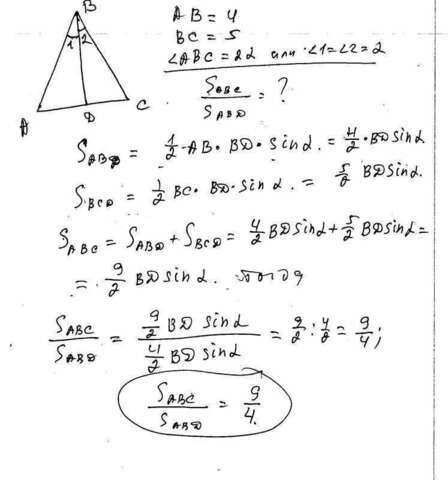 B
1 2
A D C
AB = 4
BC = 5
∠ABC = 2α или ∠1=∠2=α
S_ABC / S_ABD = ?
S_ABD = 1/2 · AB · BD · sinα. = 4/2 · BD sinα
S_BCD = 1/2 BC · BD · sinα. = 5/2 BD sinα.
S_ABC = S_ABD + S_BCD = 4/2 BD sinα + 5/2 BD sinα =
= 9/2 BD sinα. тогда
S_ABC / S_ABD = 9/2 BD sinα / 4/2 BD sinα = 9/2 : 4/2 = 9/4;
S_ABC / S_ABD = 9/4.